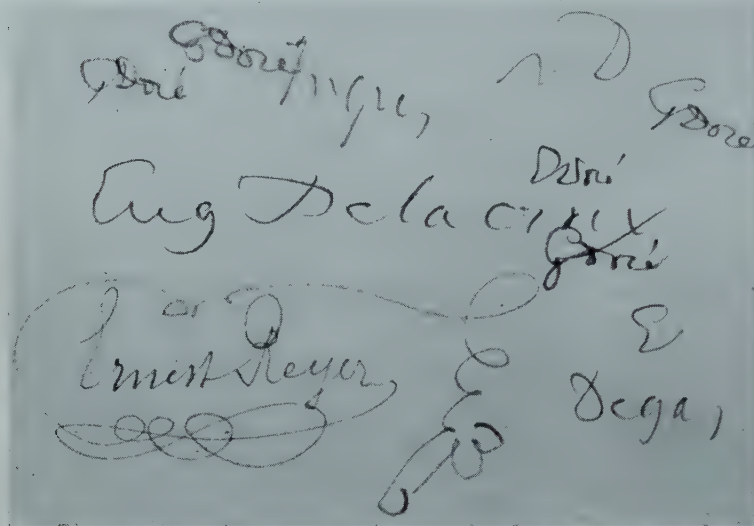 GDoré
GDoré
Ingres
D
GDoré
Eug Delacroix
Doré
GDoré
or
Ernest Reyer
E
E
Degas